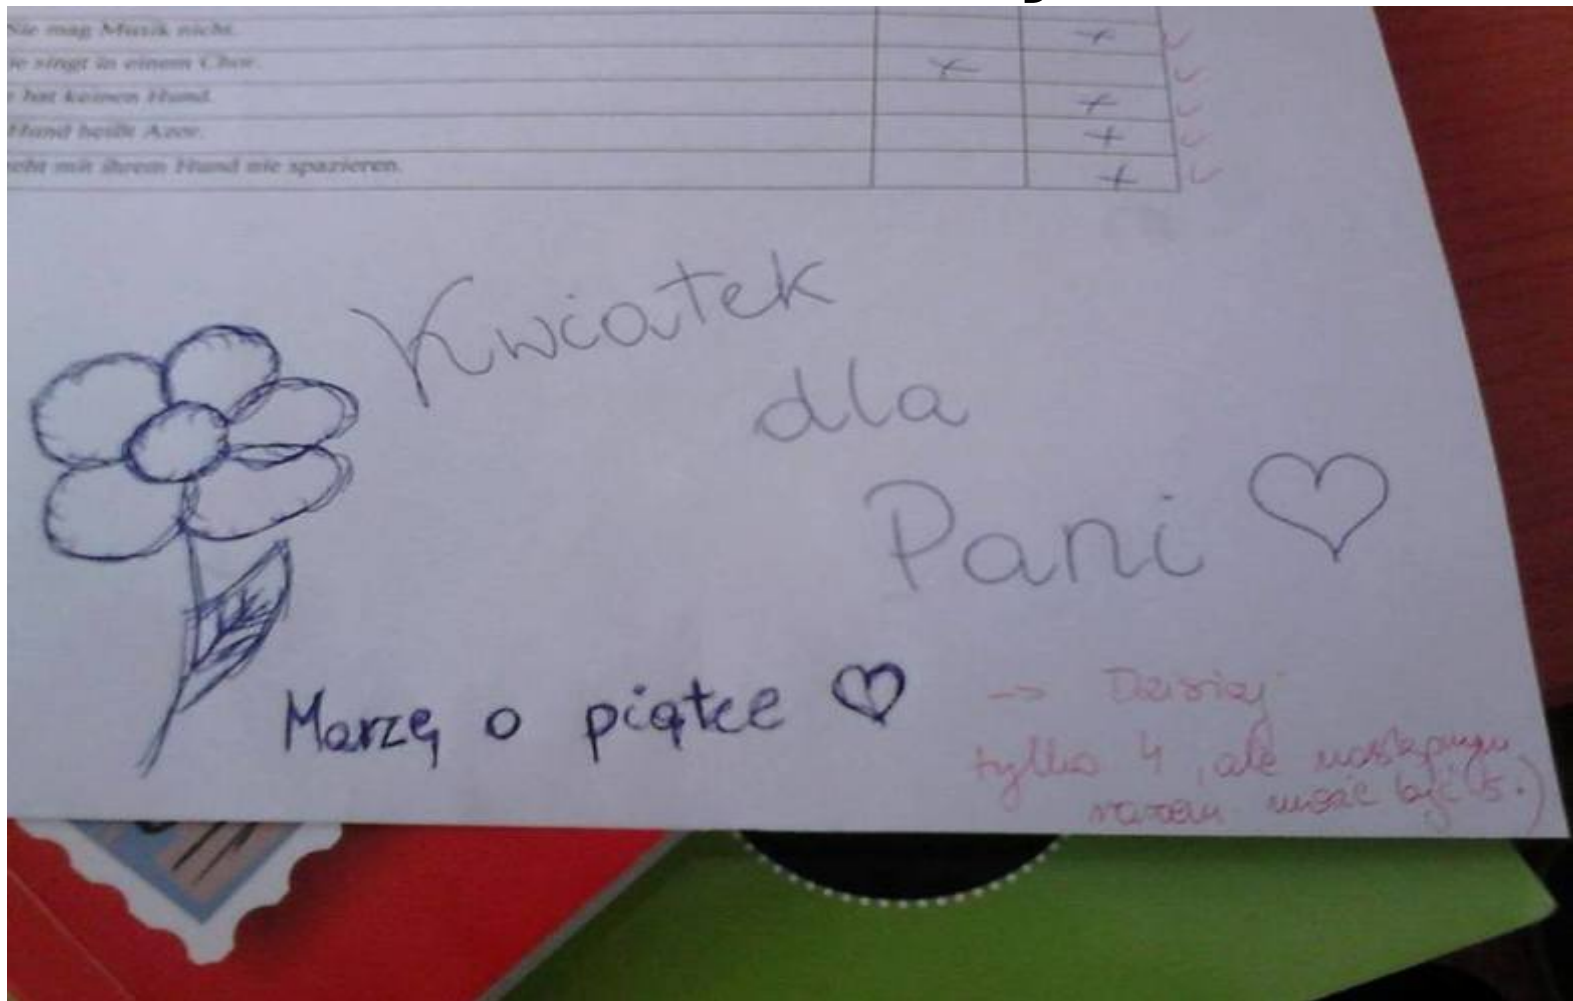 Sie mag Musik nicht.
ie singt in einem Chor.
hat keinen Hund.
Hund heißt Azor.
eht mit ihrem Hund nie spazieren.
Kwiatek
dla
Pani ♡
Marzę o piątce ♡
→ Dzisiaj
tylko 4, ale następnym
razem może być 5 :)